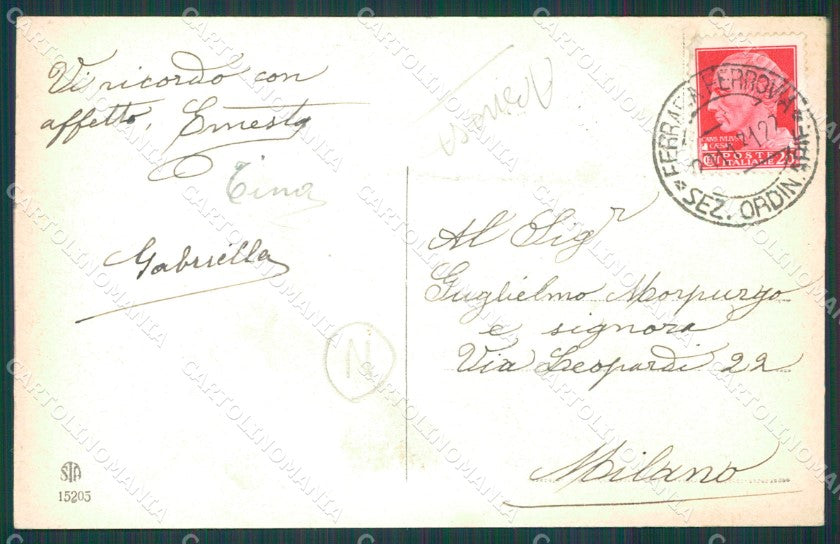 Vi ricordo con
affetto. Ernesta
Tina
Gabriella
Al Sigr
Guglielmo Morpurgo
e signora
Via Leopardi 22
Milano
FERRARA FERROVIA
SEZ. ORDIN. ARRIVI
POSTE
ITALIANE
N
STA
15205
CARTOLINOMANIA